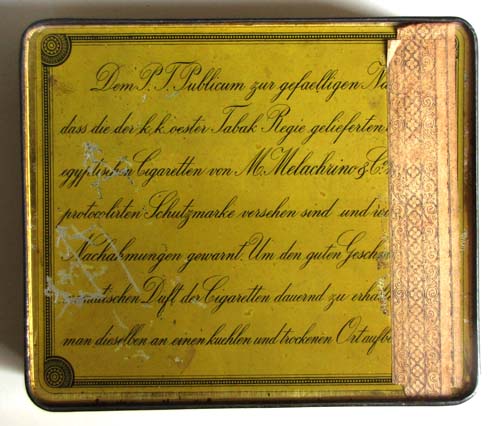 Dem P. T. Publicum zur gefaelligen
dass die der k. k. oester Tabak Regie gelieferten
egyptischen Cigaretten von M. Melachrino & Co.
protocolirten Schutzmarke versehen sind und
Nachahmungen gewarnt. Um den guten
Duft der Cigaretten dauernd zu
man dieselben an einen kuehlen und trockenen Ort